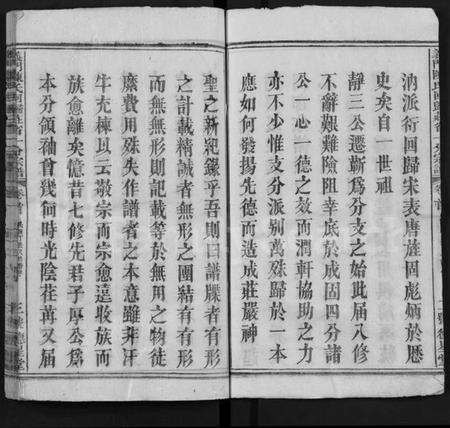 汭派衍回歸宋表唐旌固彪炳於歷
史矣自一世祖
靜三公遷蘄為分支之始此届八修
不辭艱難險阻幸底於成固四分諸
公一心一德之效而潤軒協助之力
亦不少惟支分派別萬殊歸於一本
應如何發揚先德而造成莊嚴神
聖之新紀錄乎吾則曰譜牒者有形
之計載精誠者無形之團結有有形
而無無形則記載等於無用之物徒
縻費用殊失作譜者之本意雖非汗
牛充棟以云敬宗而宗愈遠收族而
族愈離矣憶昔七修先君子厚公為
本分領袖曾幾何時光陰荏苒又届